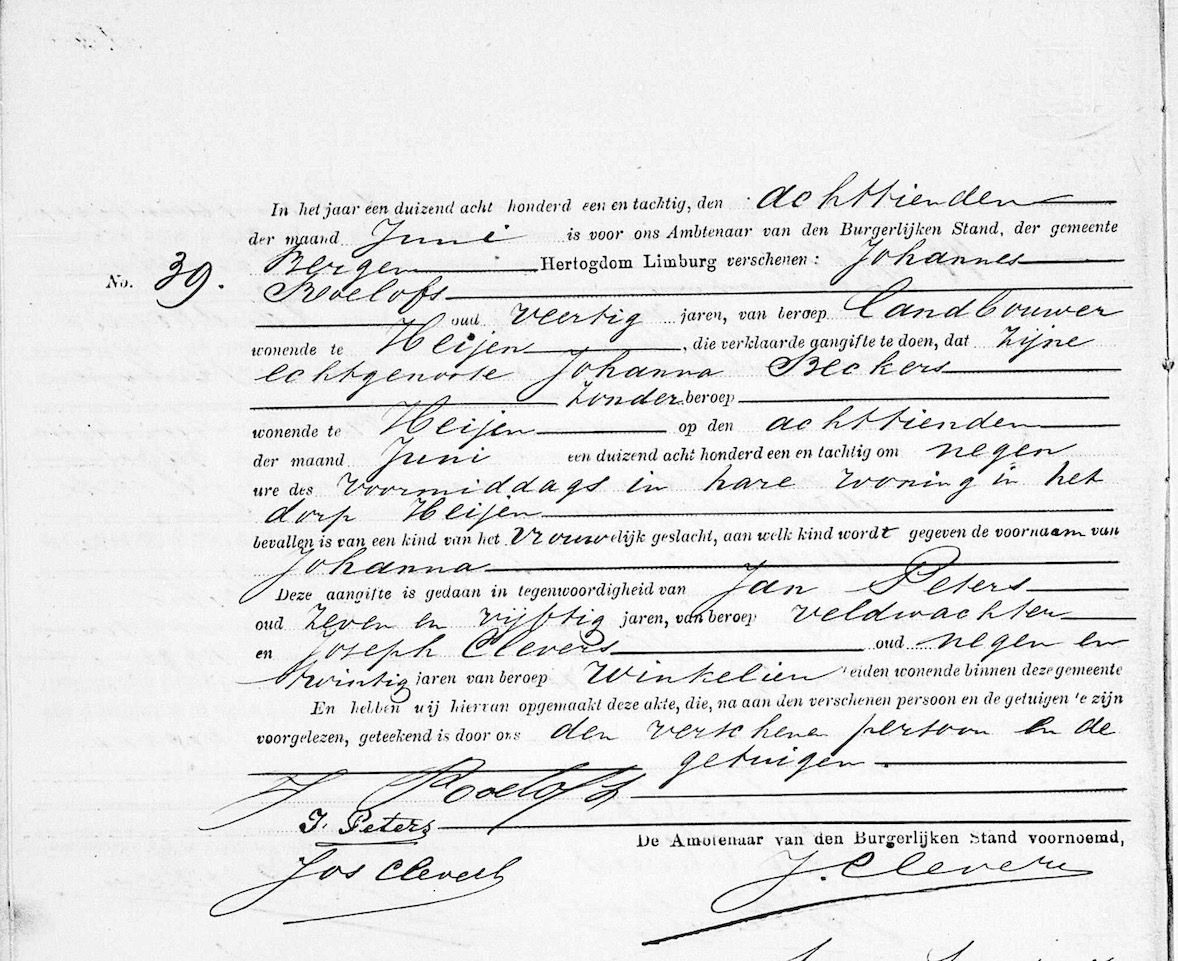 In het jaar een duizend acht honderd een en tachtig, den achttienden
der maand Juni is voor ons Ambtenaar van den Burgerlijken Stand, der gemeente
Bergen Hertogdom Limburg verschenen: Johannes
No. 39. Roelofs
oud veertig jaren, van beroep Landbouwer
wonende te Heijen, die verklaarde aangifte te doen, dat zijne
echtgenoote Johanna Beckers
Zonder beroep
wonende te Heijen op den achttienden
der maand Juni een duizend acht honderd een en tachtig om negen
ure des voormiddags in hare woning in het
dorp Heijen
bevallen is van een kind van het Vrouwelijk geslacht, aan welk kind wordt gegeven de voornaam van
Johanna
Deze aangifte is gedaan in tegenwoordigheid van Jan Peters
oud zeven en vijftig jaren, van beroep veldwachter
en Joseph Clevers oud negen en
twintig jaren van beroep Winkelier beiden wonende binnen deze gemeente
En hebben wij hiervan opgemaakt deze akte, die, na aan den verschenen persoon en de getuigen te zijn
voorgelezen, geteekend is door ons den verschenen persoon en de
getuigen.
J Roelofs
J. Peters
De Ambtenaar van den Burgerlijken Stand voornoemd,
Jos Clevers J. Clevers